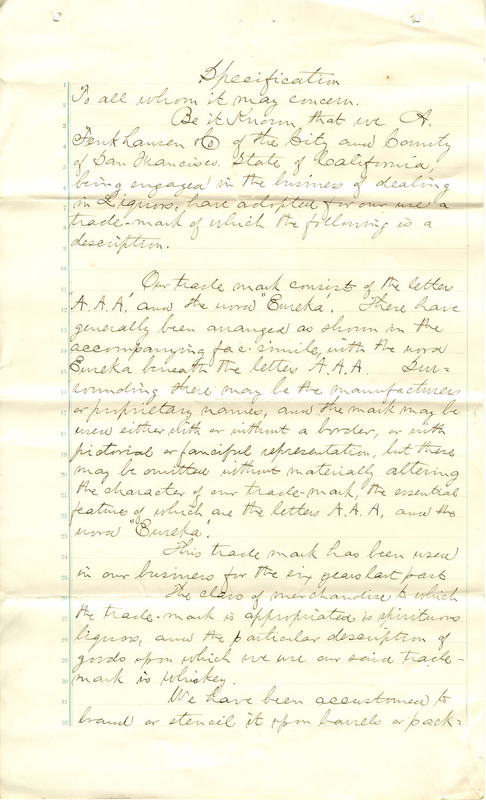 Specification
To all whom it may concern.
Be it Known that we A.
Fenkhausen & Co of the City and County
of San Francisco. State of California,
being engaged in the business of dealing
in Liquors, have adopted for our use a
trade-mark of which the following is a
description.
Our trade mark consist of the letter
"A.A.A." and the word "Eureka". These have
generally been arranged as shown in the
accompanying fac-simile, with the word
Eureka beneath the letters A.A.A. Sur-
rounding these may be the manufacturers
or proprietary names, and the mark may be
used either with or without a border, or with
pictorial or fanciful representation, but these
may be omitted without materially altering
the character of our trade-mark, the essential
feature of which are the letters A.A.A, and the
word "Eureka".
This trade mark has been used
in our business for the six years last past
The class of merchandise to which
the trade-mark is appropriated is spirituous
liquors, and the particular description of
goods upon which we use our said trade-
mark is whiskey.
We have been accustomed to
brand or stencil it upon barrels or pack-